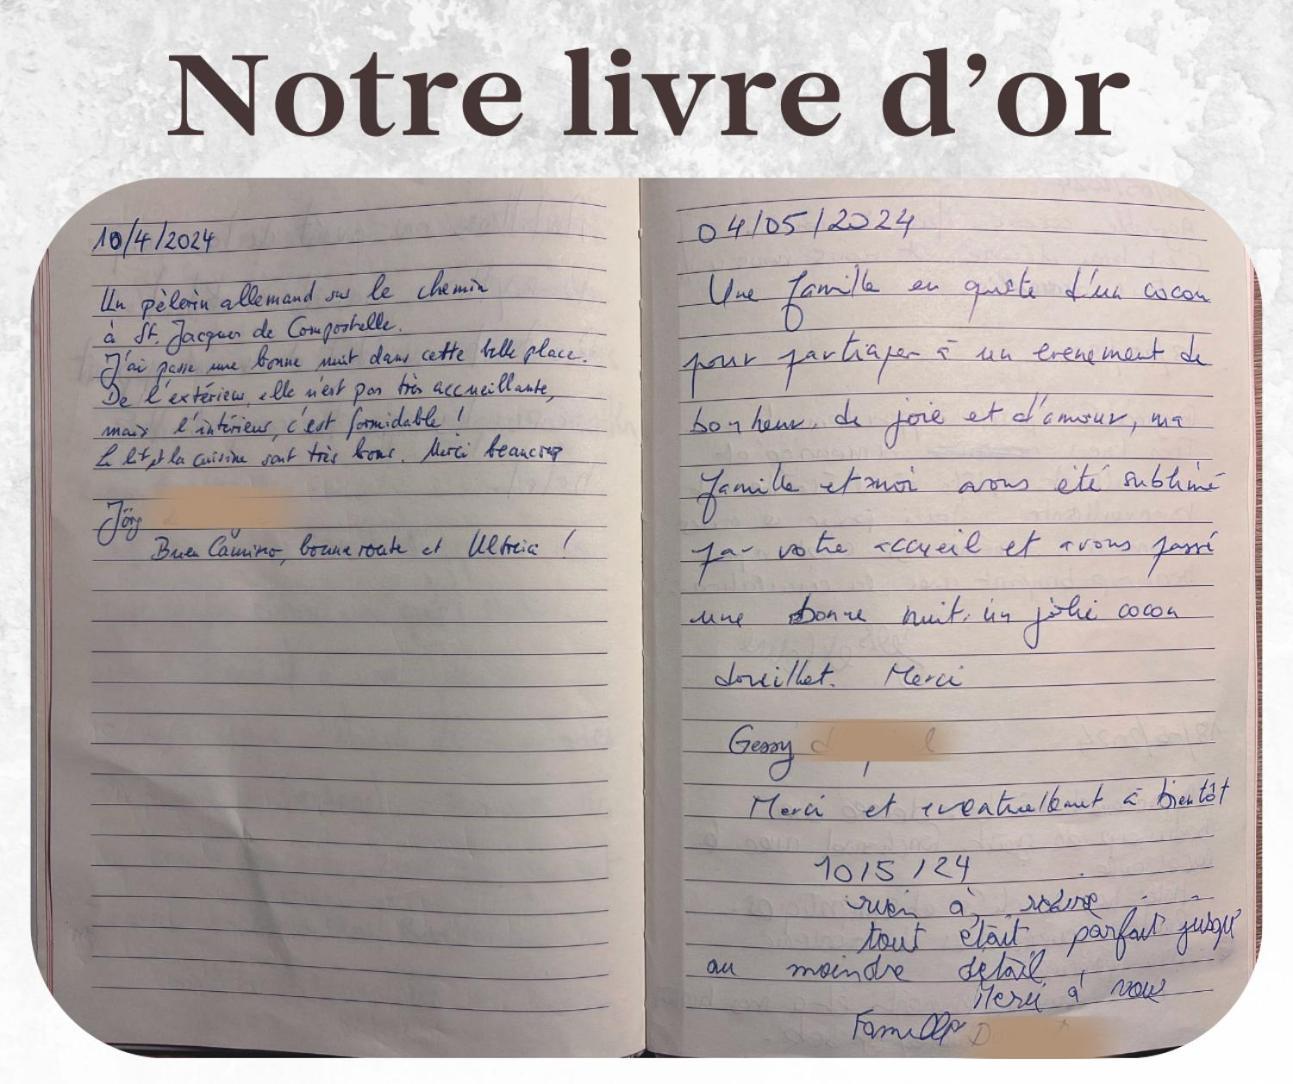 Notre livre d'or
10/4/2024
Un pèlerin allemand sur le chemin
à St. Jacques de Compostelle.
J'ai passe une bonne nuit dans cette belle place.
De l'extérieur, elle n'est pas très accueillante,
mais l'intérieur, c'est formidable !
Le lit et la cuisine sont très bons. Merci beaucoup
Jörg
Buen Camino, bonne route et Ultreia !
04/05/2024
Une famille en quête d'un cocon
pour partiaper à un evenement de
bonheur, de joie et d'amour, ma
famille et moi avons été sublimé
par votre accueil et avons passé
une bonne nuit. un jolie cocon
douillet. Merci
Gessy
Merci et eventuellement à bientôt
10/5/24
rien à redire
tout était parfait jusqu'
au moindre detail
Merci à vous
Famille D